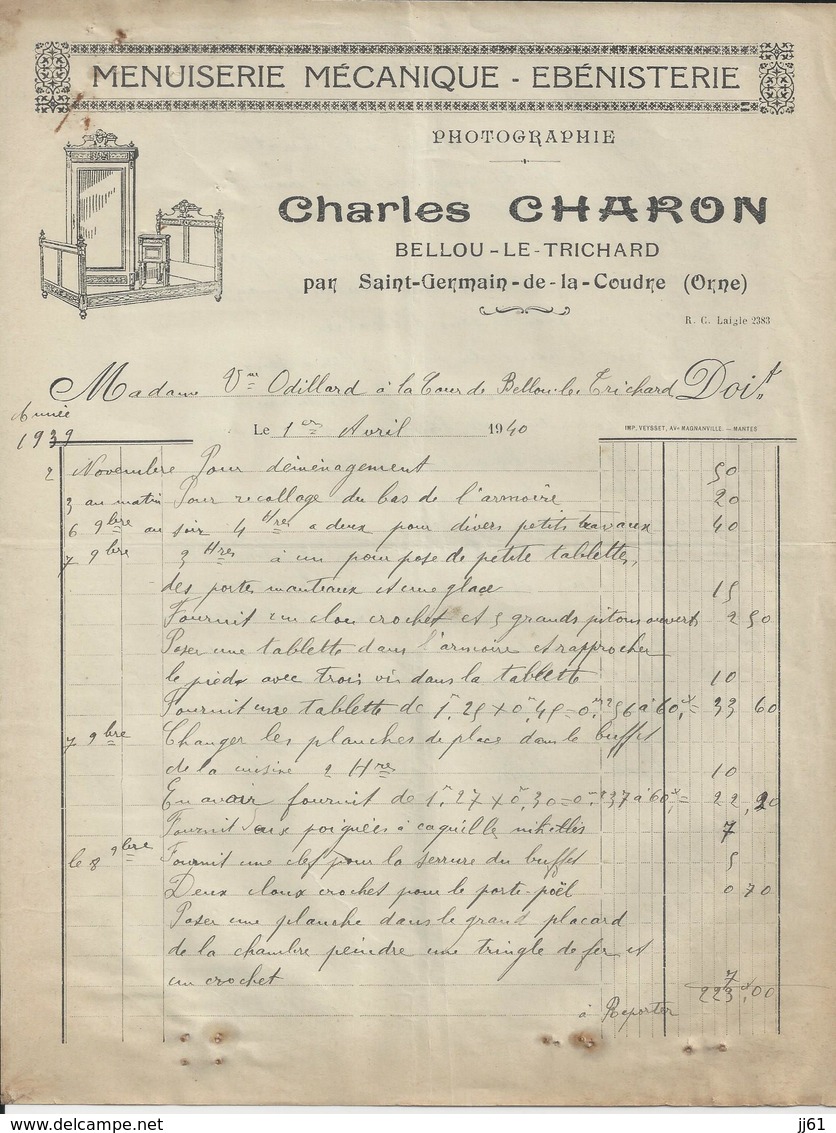 MENUISERIE MÉCANIQUE - EBÉNISTERIE
PHOTOGRAPHIE
Charles CHARON
BELLOU-LE-TRICHARD
par Saint-Germain-de-la-Coudre (Orne)
R. C. Laigle 2383
Madame Vve Odillard à la Cour de Bellou-le-Trichard Doit
Année
1939
Le 1er Avril 1940
IMP. VEYSSET, AVe MAGNANVILLE. — MANTES
2 Novembre Pour déménagement 50
3 au matin Pour recollage du bas de l'armoire 20
6 9bre au soir 4 Hres a deux pour divers petits travaux 40
7 9bre 3 Hres à un pour pose de petite tablettes,
des portes manteaux et une glace 15
Fournit un clou crochet et 5 grands pitons ouverts 2 50
Poser une tablette dans l'armoire et rapprocher
le pieds avec trois vis dans la tablette 10
Fournit une tablette de 1m,25 x 0m,45 = 0,m256 à 60,x = 33 60
7 9bre Changer les planches de place dans le buffet
de la cuisine 2 Hres 10
En avoir fournit de 1m,27 x 0m,30 = 0m237 à 60x = 22,20
Fournit deux poignées à coquille 7
le 8 9bre Fournit une clef pour la serrure du buffet 5
Deux cloux crochet pour le porte-poël 0 70
Poser une planche dans le grand placard
de la chambre peindre une tringle de fer et
un crochet 7
223,00
à Reporter